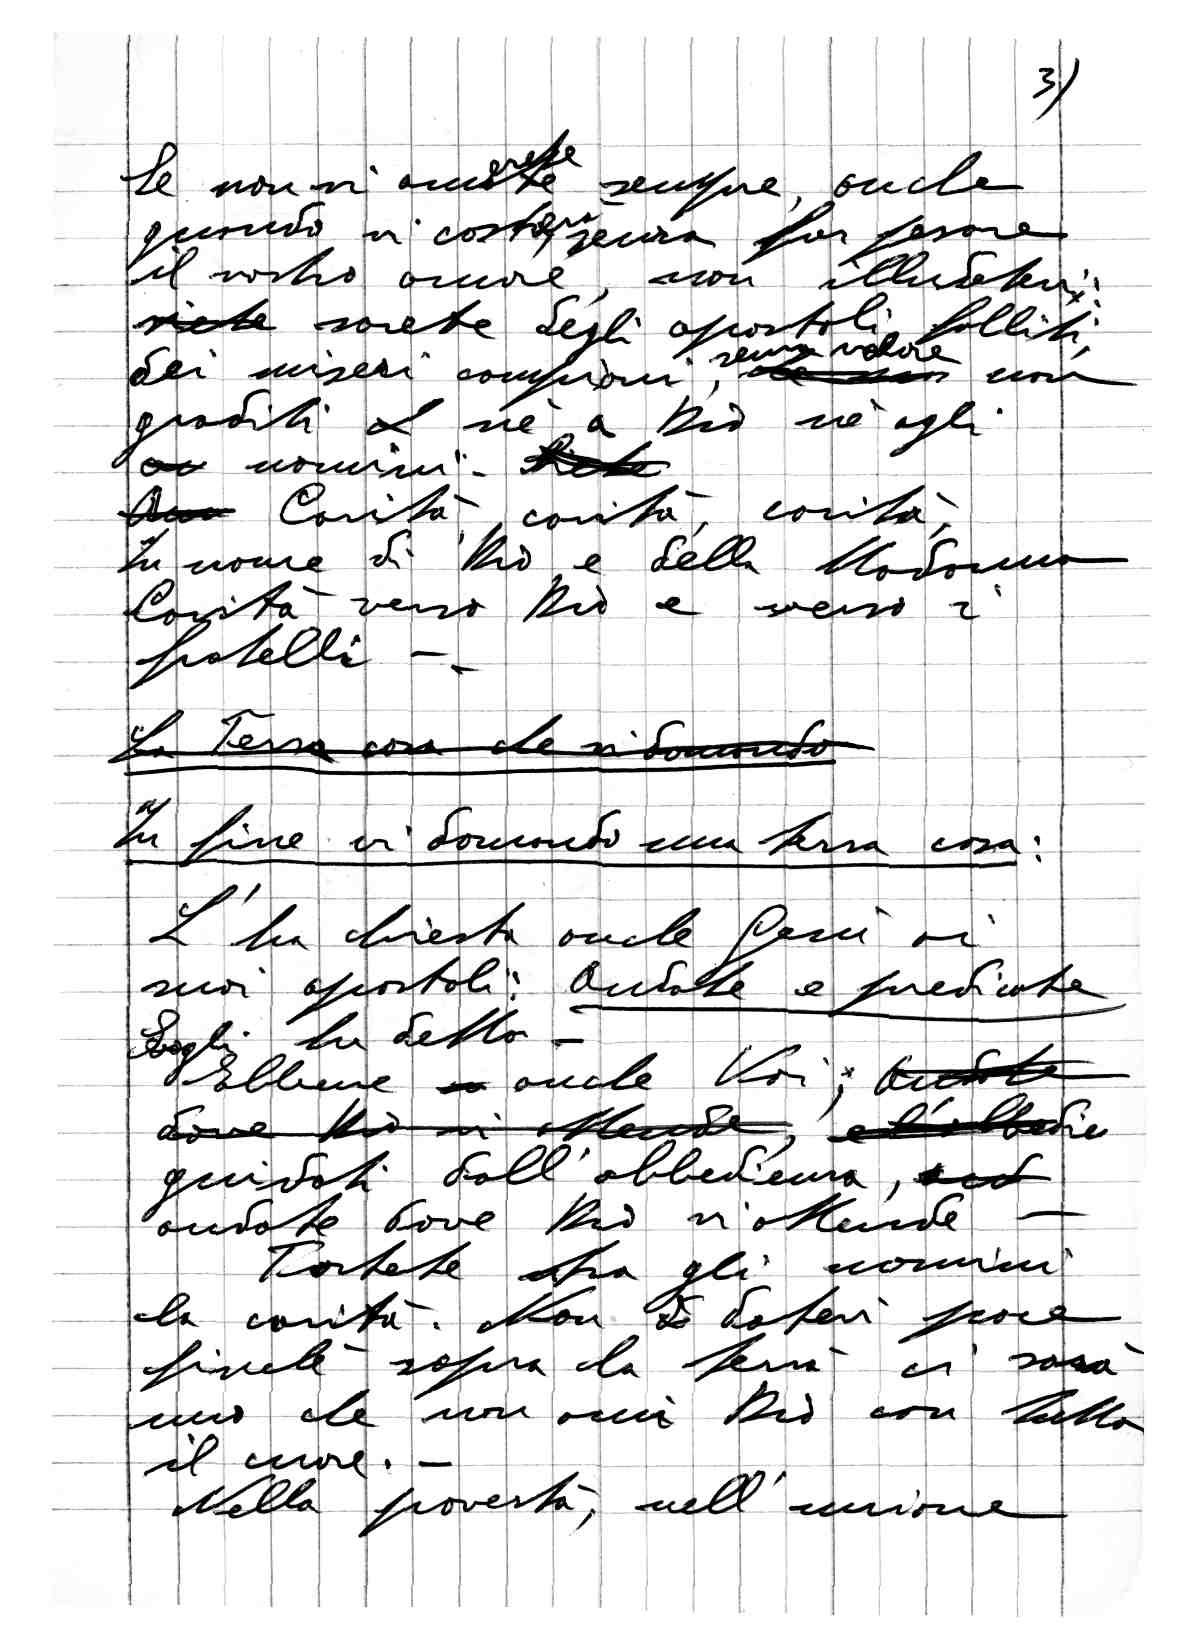 3)
Se non vi amerete sempre, anche
quando vi costerà, senza far pesare
il vostro amore, non illudetevi:
siete sarete degli apostoli falliti,
dei miseri campioni, senza valore non
graditi nè a Dio nè agli
uomini. Siete
Carità, carità, carità,
In nome di Dio e della Madonna
Carità verso Dio e verso i
fratelli -
La Terza cosa che vi domando
In fine vi domando una terza cosa:
L'ha chiesta anche Gesù ai
suoi apostoli: Andate e predicate
Egli ha detto -
Ebbene anche Voi; Andate
dove Dio vi attende, e l'obbedie
guidati dall'obbedienza, and
andate dove Dio vi attende -
Portate tra gli uomini
la carità. Non datevi pace
finchè sopra la terra ci sarà
uno che non ami Dio con tutto
il cuore. -
Nella povertà, nell'unione